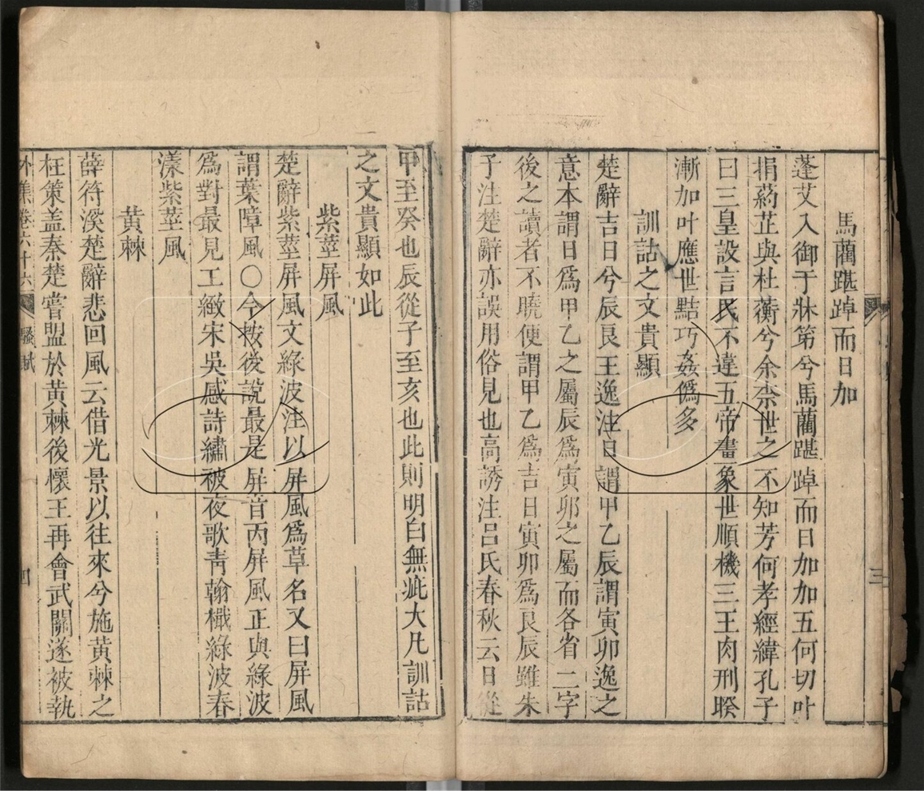 馬藺踸踔而日加
蓬艾入御于牀第兮馬藺踸踔而日加加五何切叶
捐葯芷與杜蘅兮余柰世之不知芳何孝經緯孔子
曰三皇設言民不違五帝畫象世順機三王肉刑揆
漸加叶應世黠巧姦僞多
訓詁之文貴顯
楚辭吉日兮辰良王逸注日謂甲乙辰謂寅卯逸之
意本謂日爲甲乙之屬辰爲寅卯之屬而各省二字
後之讀者不曉便謂甲乙爲吉日寅卯爲良辰雖朱
子注楚辭亦誤用俗見也高誘注呂氏春秋云日從
甲至癸也辰從子至亥也此則明白無疵大凡訓詁
之文貴顯如此
紫莖屏風
楚辭紫莖屏風文綠波注以屏風爲草名又曰屏風
謂葉障風○今按後說最是屏音丙屏風正與綠波
爲對最見工緻宋吳感詩繡被夜歌靑翰檝綠波春
漾紫莖風
黃棘
薛符溪楚辭悲回風云借光景以往來兮施黃棘之
枉策盖秦楚嘗盟於黃棘後懷王再會武關遂被執
外集卷六十六
騷賦
三